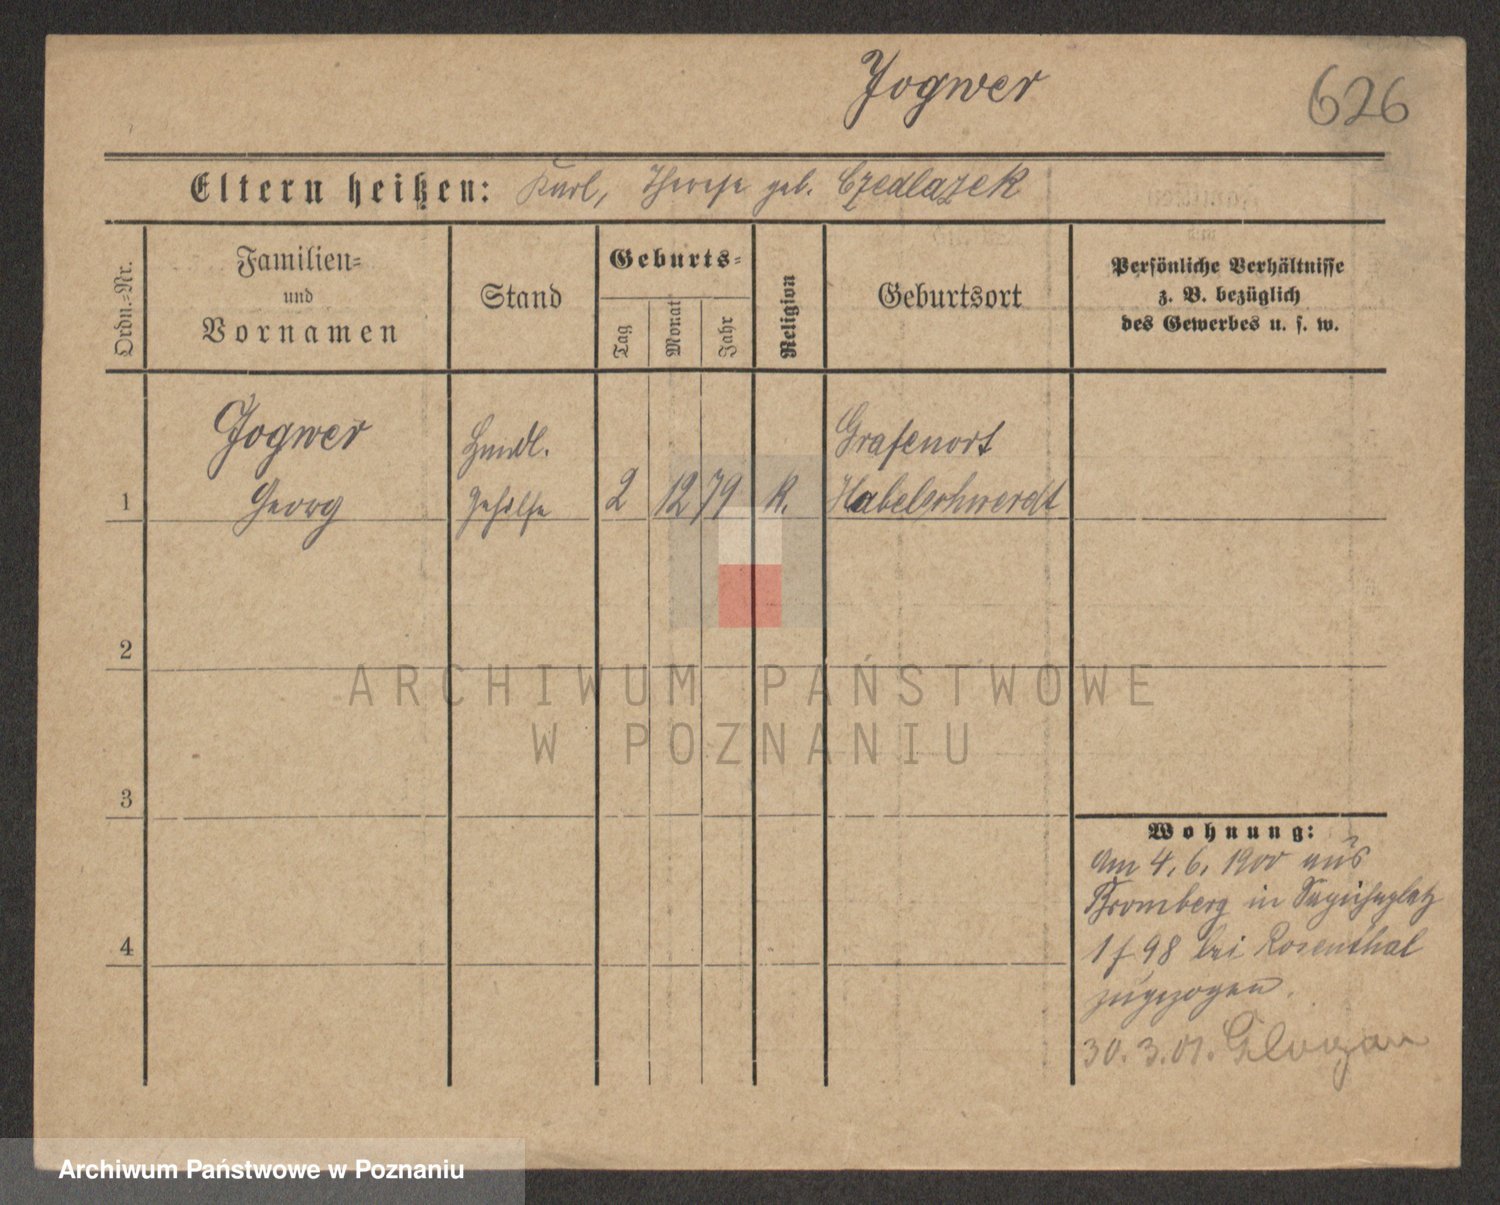 Jogwer
626
Eltern heißen: Karl, Therese geb. Czedlazek
Ordn.-Nr.
Familien-
und
Vornamen
Stand
Geburts-
Tag
Monat
Jahr
Religion
Geburtsort
Persönliche Verhältnisse
z. B. bezüglich
des Gewerbes u. s. w.
Jogwer
Handl.
Grafenort
1 Georg Gehilfe 2 12 79 K. Habelschwerdt
2
ARCHIWUM PAŃSTWOWE
W POZNANIU
3
Wohnung:
Am 4. 6. 1900 aus
Bromberg in Sapiehaplatz
1 f 98 bei Rosenthal
4
zugezogen.
30. 3. 01. Glogau
Archiwum Państwowe w Poznaniu